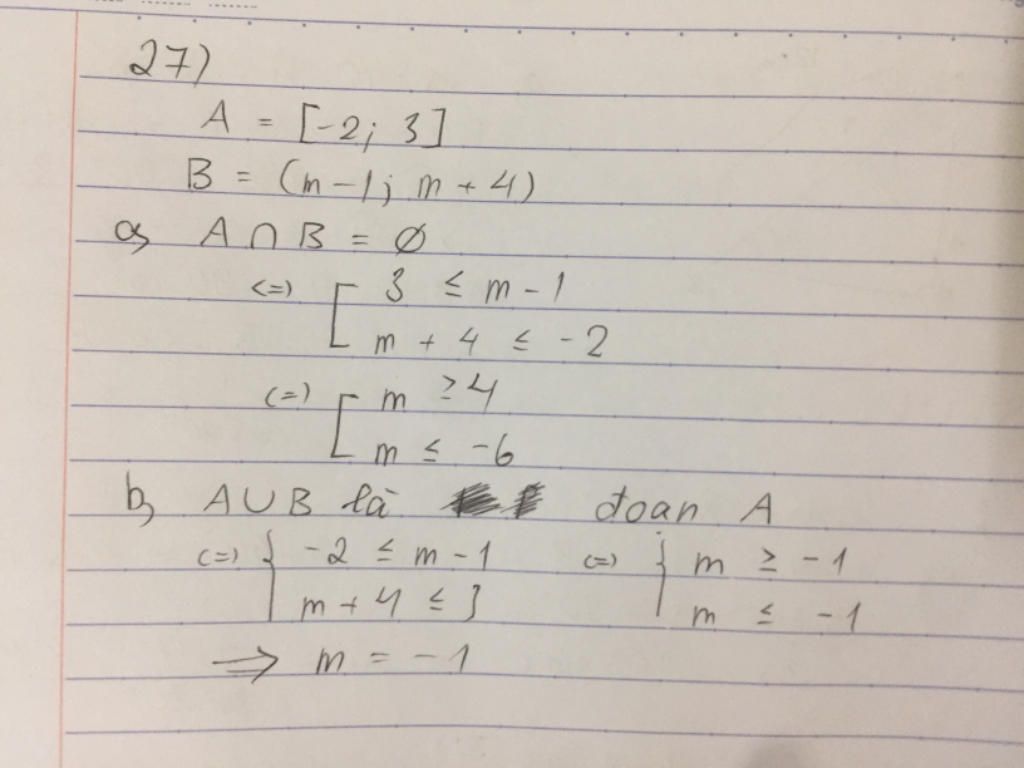 27)
A = [-2; 3]
B = (m - 1; m + 4)
a, A ∩ B = ∅
<=> [ 3 ≤ m - 1
m + 4 ≤ -2
(=) [ m ≥ 4
m ≤ -6
b, A ∪ B là đoan A
(=) { -2 ≤ m - 1 (=) { m ≥ -1
m + 4 ≤ 3 m ≤ -1
=> m = -1